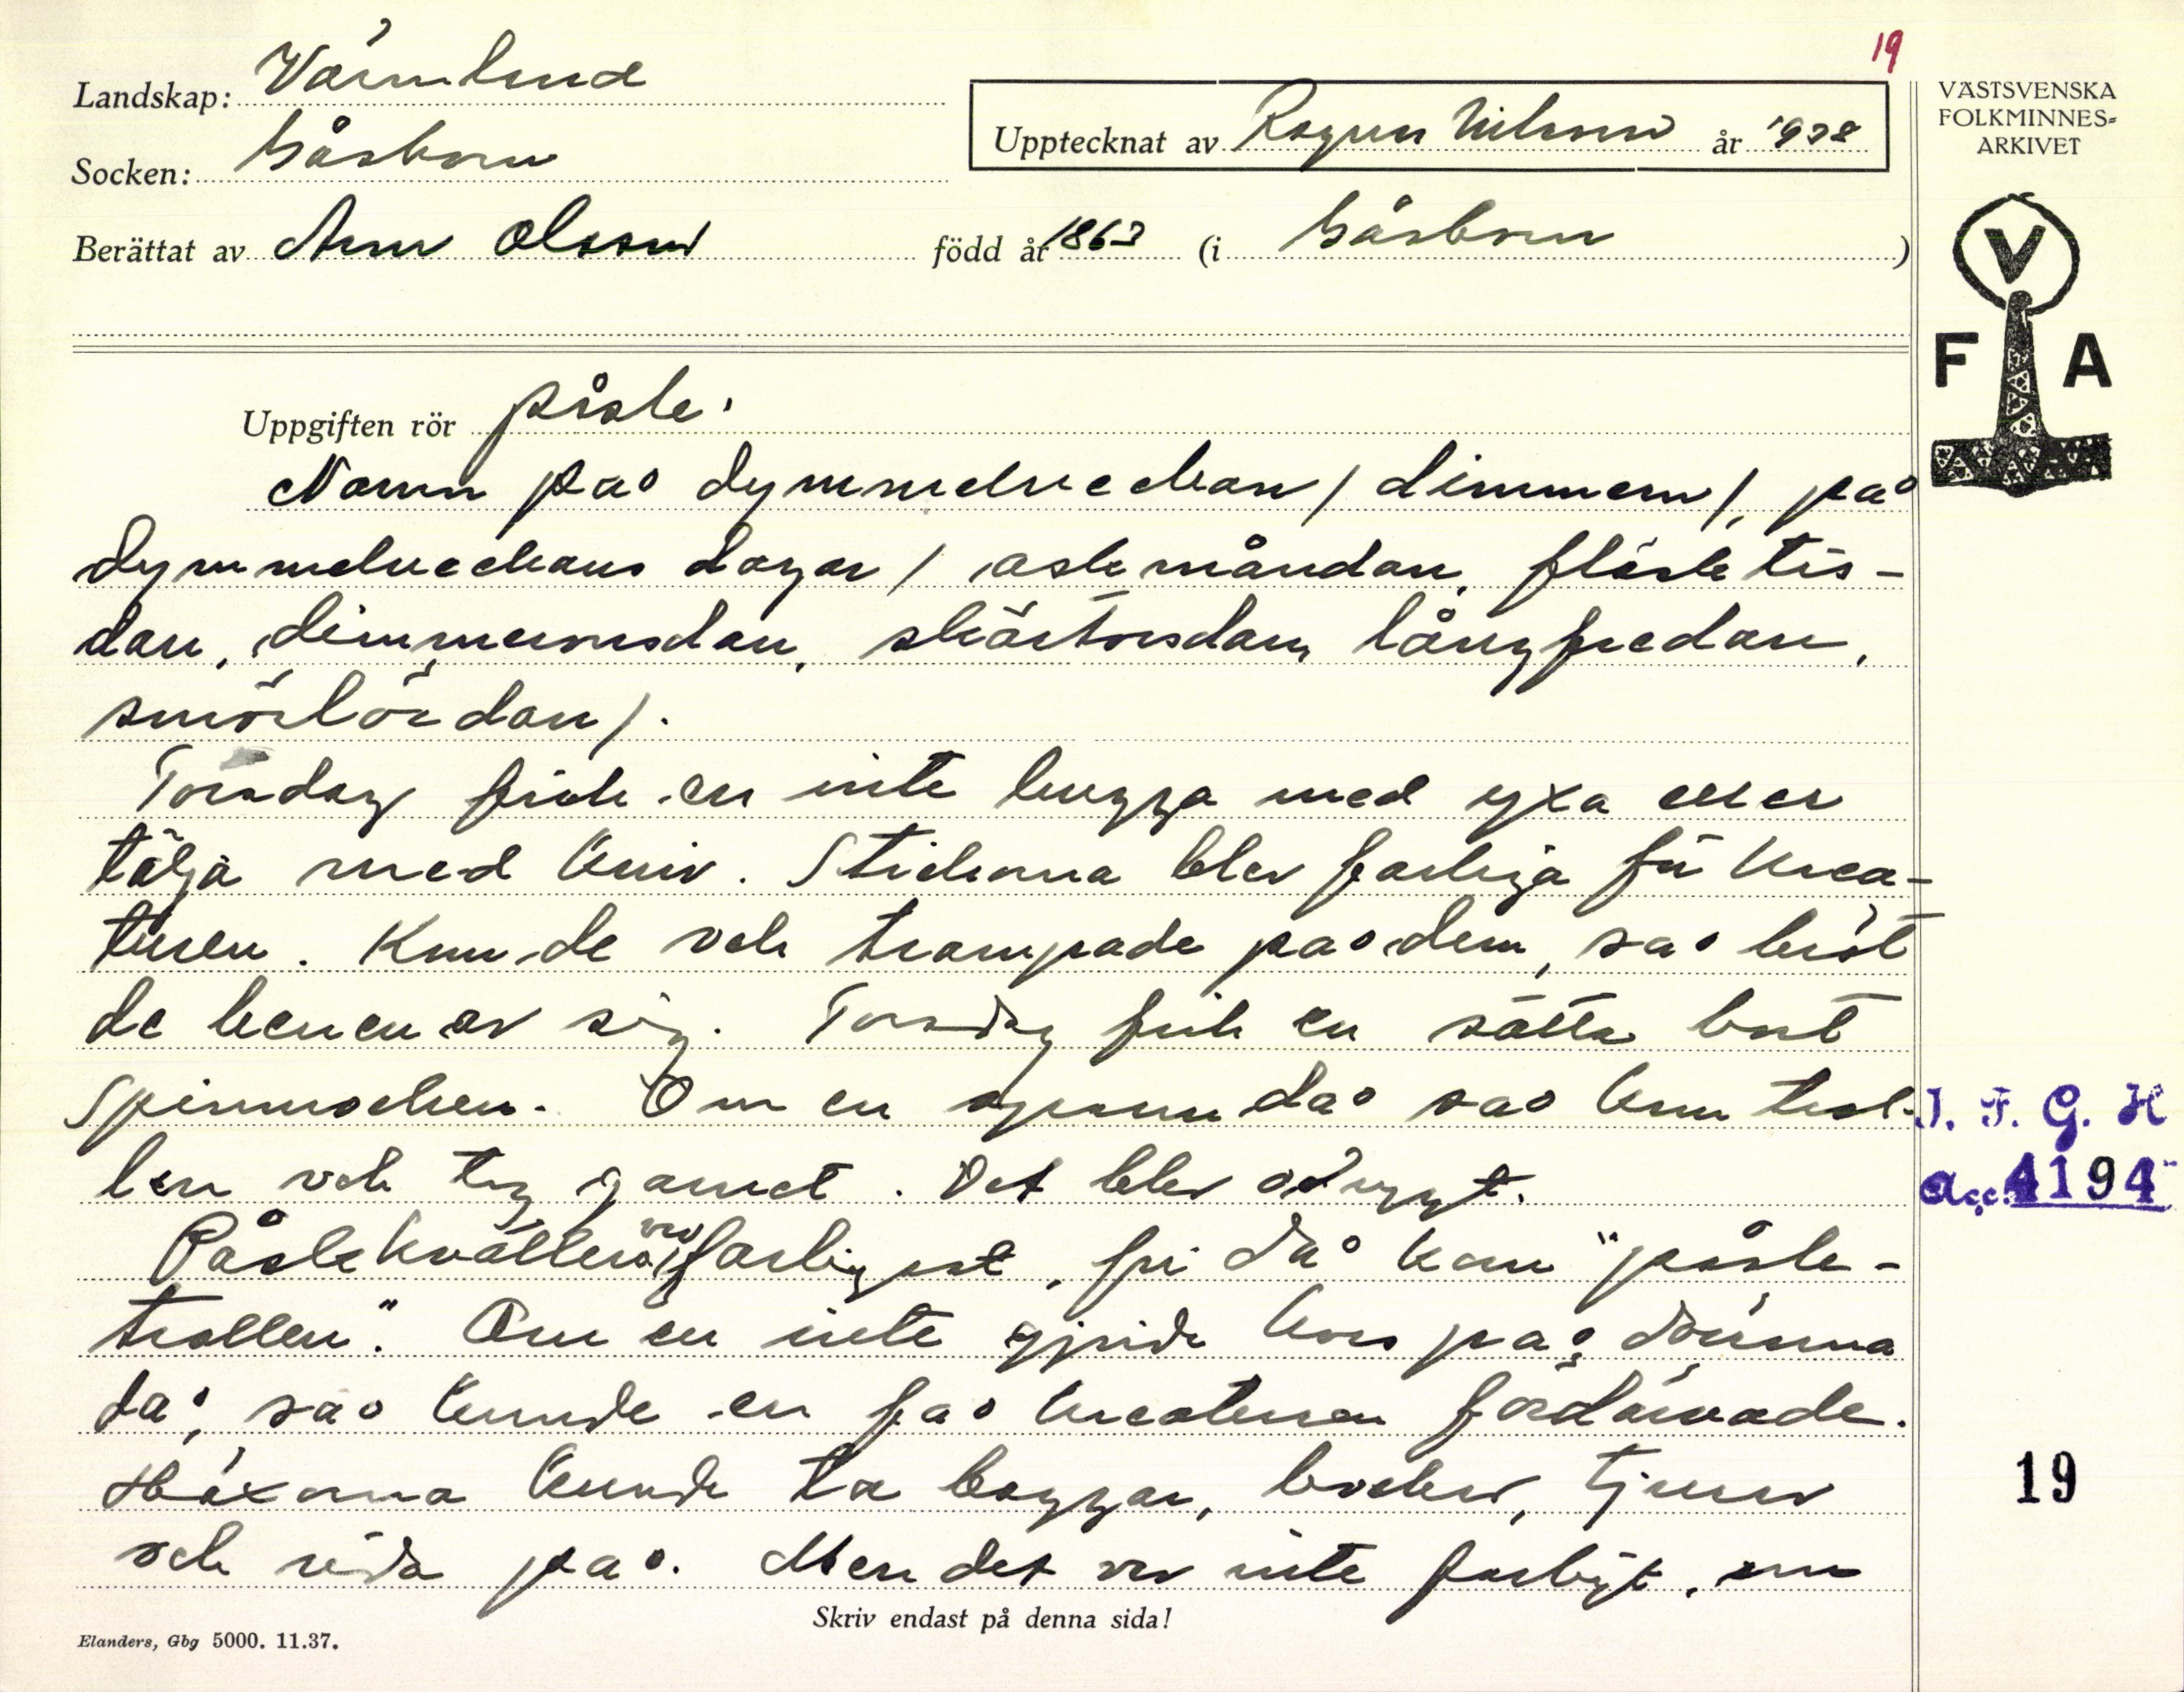 19
Landskap: Värmland
Socken: Gåsborn
Upptecknat av Ragnar Nilsson år 1938
Berättat av Anna Olsson född år 1863 (i Gåsborn )
VÄSTSVENSKA
FOLKMINNES-
ARKIVET
V
F A
Uppgiften rör påsk.
Namn på dymmelveckan / dimmern /, på
dymmelveckans dagar / askmåndan, fläsktis-
dan, dimmeronsdan, skärtorsdan, långfredan,
smörlördan /.
Torsdag fick en inte hugga med yxa eller
tälja med kniv. Stickorna blev farliga för krea-
turen. Kom de och trampade på dem, så bröt
de benen av sig. Torsdag fick en sätta bort
spinnrocken. Om en spann då så kom trol-
len och tog garnet. Det blev odrygt.
Påskkvällen var farligast, för då kom "påsk-
trollen". Om en inte gjorde kors på dörrarna
då, så kunde en få kreaturen fördärvade.
Häxorna kunde ta baggar, bockar, tjurar
och rida på. Men det var inte farligt, om
Skriv endast på denna sida!
Elanders, Gbg 5000. 11.37.
I. F. G. H
Acc. 4194
19